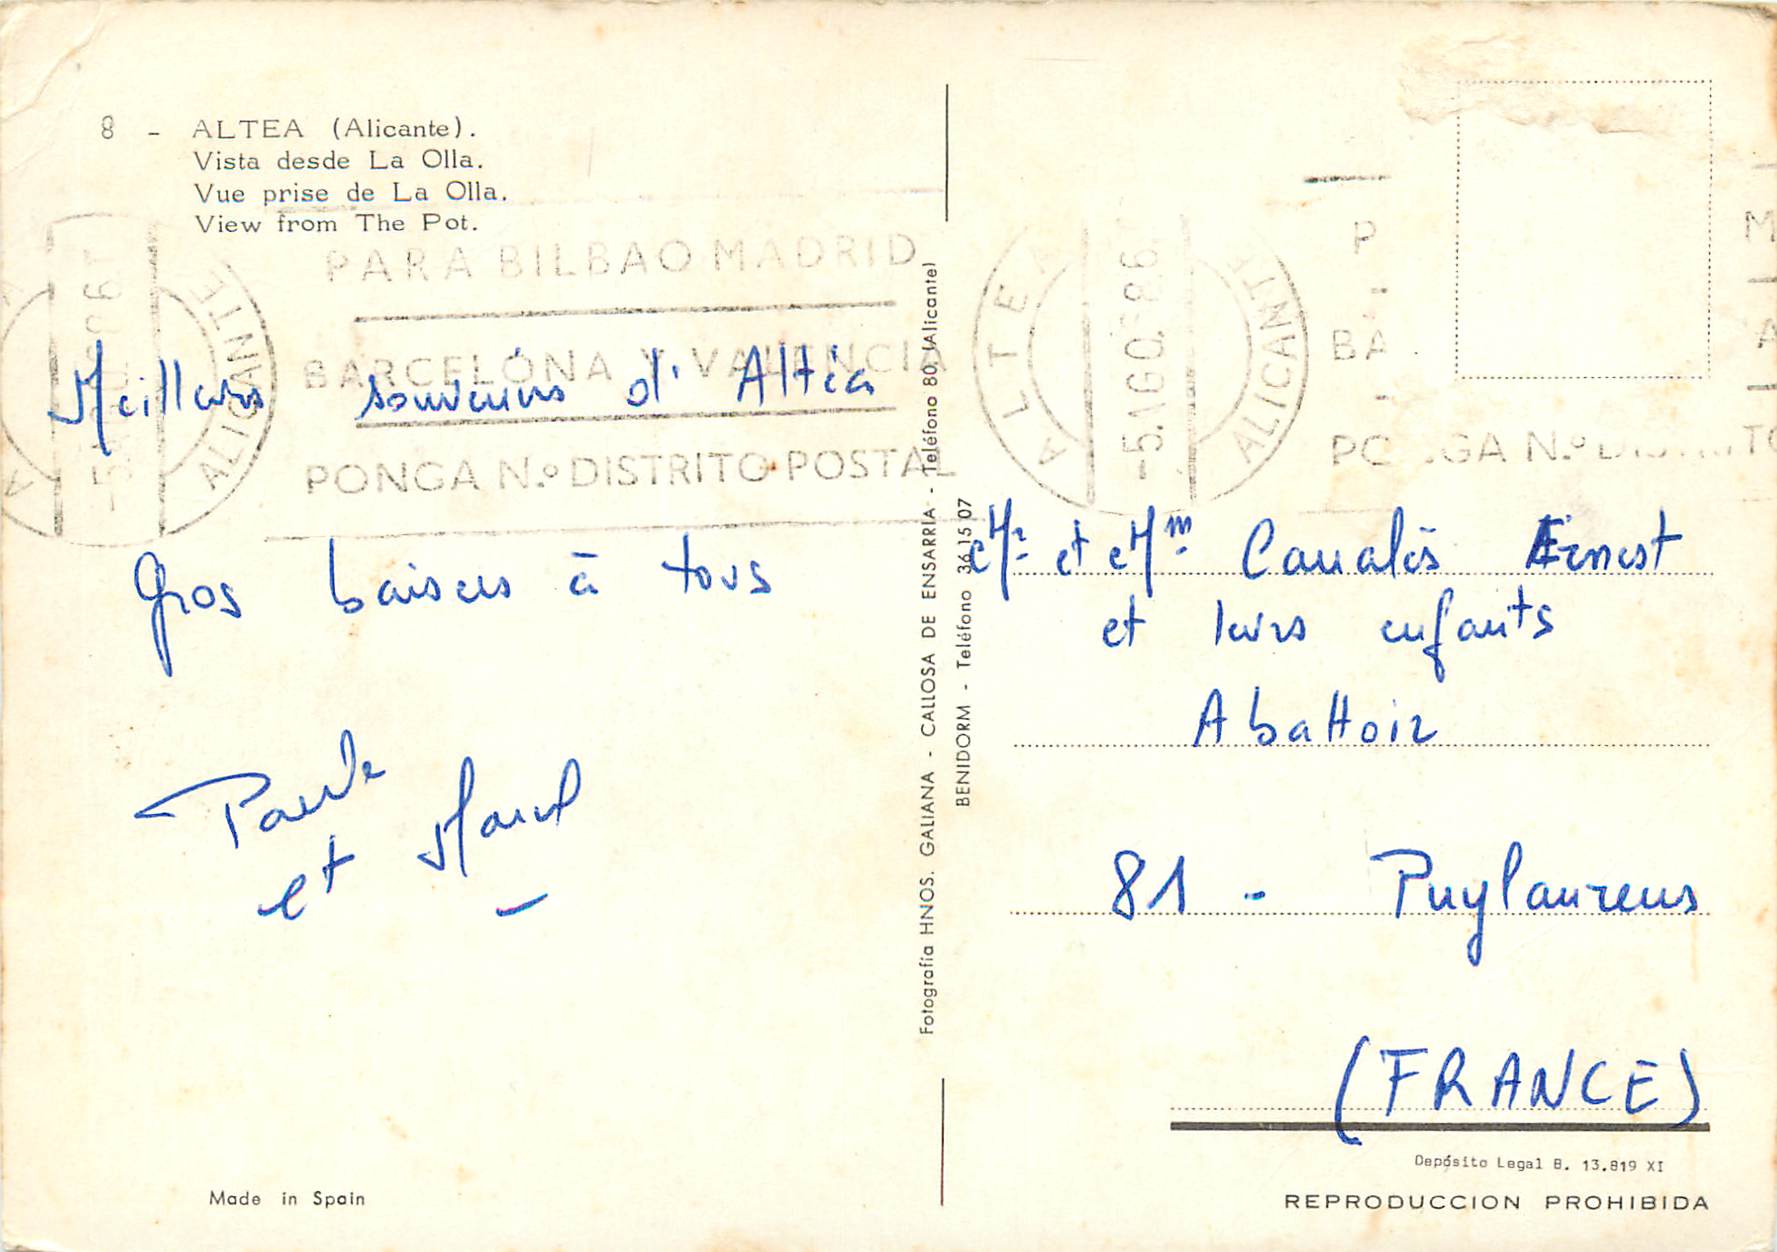 8 - ALTEA (Alicante).
Vista desde La Olla.
Vue prise de La Olla.
View from The Pot.
PARA BILBAO MADRID
BARCELONA Y VALENCIA
PONGA N.º DISTRITO POSTAL
ALTEA
ALICANTE
-5.AGO.
Meilleurs souvenirs d'Altéa
Gros baisers à tous
Paule
et Marcel
Fotografía HNOS. GALIANA - CALLOSA DE ENSARRIA - Teléfono 80 (Alicante)
BENIDORM - Teléfono 36 15 07
ALICANTE
PONGA N.º DISTRITO
Mr et Mm Caualès Ernest
et leurs enfants
Abattoir
81 - Puylaurens
(FRANCE)
Depósito Legal B. 13.819 XI
Made in Spain
REPRODUCCION PROHIBIDA